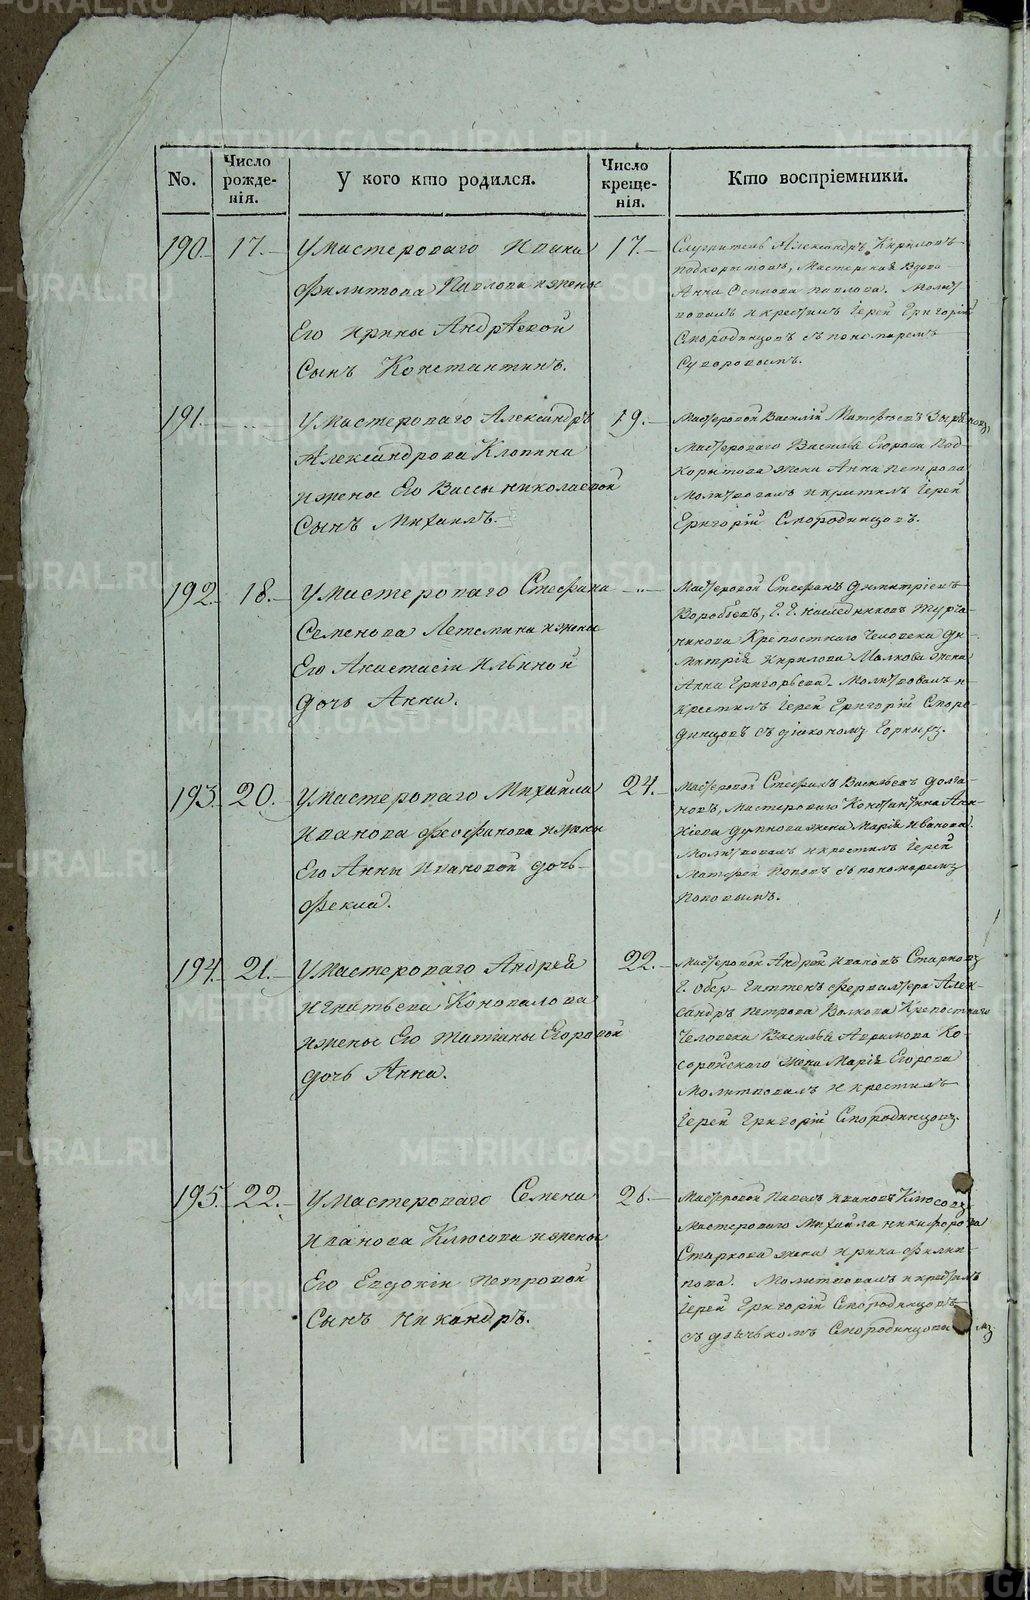 No.
Число рожде-нія.
У кого кто родился.
Число креще-нія.
Кто воспріемники.
190. 17.
У мастероваго Ивана
Филипова Павлова и жены
Его Ирины Андрѣевой
Сынъ Константинъ.
17.
Служитель Александръ Кириловъ
Подкорытовъ, Мастерская Вдова
Анна Осипова Павлова. Молит
вовалъ и крестилъ Іерей Григорій
Смородинцовъ съ пономаремъ
Суворовымъ.
191. - . . -
У Мастероваго Александръ
Александрова Клопина
и жены Его Вассы Николаевой
Сынъ Михаилъ.
19.
Мастеровой Василій Матвѣевъ
Мастероваго Василья Егорова Под-
корытова жена Анна Петрова
Молитвовалъ и критилъ Іерей
Григорій Смородинцовъ.
192. 18.
У Мастероваго Стефана
Семенова Летемина и жены
Его Анастасіи Ильиной
дочь Анна.
- .. -
Мастеровой Стефанъ Димитріевъ
Воробьевъ, Г. Г. наследниковъ Турча-
нинова Крепостнаго Человека Ди-
митрія Кирилова Малкова жена
Анна Григорьева. Молитвовалъ и
крестилъ Іерей Григорій Сморо-
динцовъ съ діакономъ
193. 20.
У Мастероваго Михайла
Иванова Феофанова и жены
Его Анны Ивановой дочь
Фекла.
24.
Мастеровой Стефанъ Васильевъ Долга-
новъ, Мастероваго Константина
жена Марія Иванова.
Молитвовалъ и крестилъ Іерей
Матфей Поповъ съ пономаремъ
Поповымъ.
194. 21.
У Мастероваго Андрея
Игнатьева Коновалова
и жены Его Татіаны Егоровой
дочь Анна.
22.
Мастеровой Андрей Ивановъ Старковъ
Г. Обер-Гиттенъ фервалтера Алек-
сандръ Петрова Волкова Крепостнаго
Человека Василья Ко-
жена Марія Егорова
Молитвовалъ и крестилъ
Іерей Григорій Смородинцовъ.
195. 22.
У Мастероваго Семена
Иванова Клюсова и жены
Его Евдокіи Петровой
Сынъ Никандръ.
26.
Мастеровой Павелъ Ивановъ Клюсовъ
Мастероваго Михайла Никифорова
Старкова жена Ирина Филип-
пова. Молитвовалъ и крестилъ
Іерей Григорій Смородинцовъ
съ дьячкомъ Смородинцовымъ
METRIKI.GASO-URAL.RU